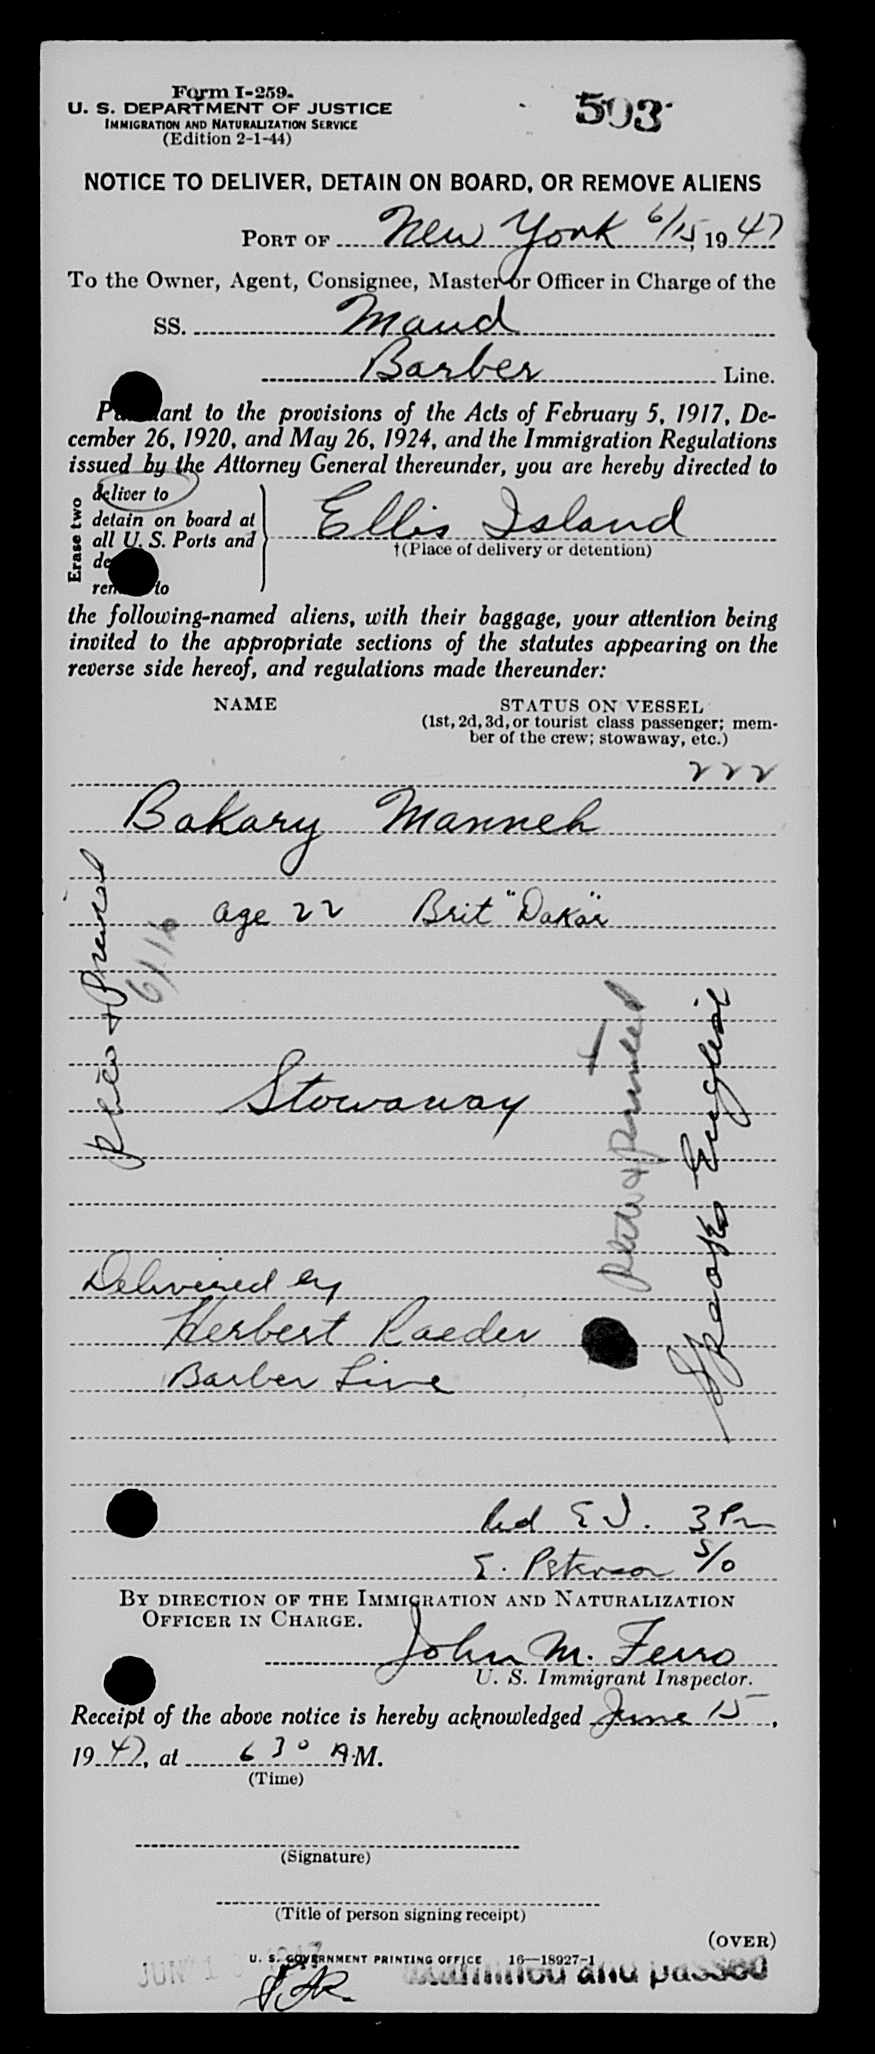 Form I-259.
U. S. DEPARTMENT OF JUSTICE
IMMIGRATION AND NATURALIZATION SERVICE
(Edition 2-1-44)
503
NOTICE TO DELIVER, DETAIN ON BOARD, OR REMOVE ALIENS
PORT OF New York 6/15, 1947
To the Owner, Agent, Consignee, Master or Officer in Charge of the
SS. Maud
Barber Line.
Pursuant to the provisions of the Acts of February 5, 1917, De-
cember 26, 1920, and May 26, 1924, and the Immigration Regulations
issued by the Attorney General thereunder, you are hereby directed to
Erase two
deliver to
detain on board at
all U. S. Ports and
to
Ellis Island
†(Place of delivery or detention)
the following-named aliens, with their baggage, your attention being
invited to the appropriate sections of the statutes appearing on the
reverse side hereof, and regulations made thereunder:
NAME
STATUS ON VESSEL
(1st, 2d, 3d, or tourist class passenger; mem-
ber of the crew; stowaway, etc.)
Bakary Manneh
age 22 Brit "Dakar"
6/16
Stowaway
photo & printed
Speaks English
Delivered by
Herbert Raeder
Barber Line
E. I. 3 Pm
E. Peterson S/O
BY DIRECTION OF THE IMMIGRATION AND NATURALIZATION
OFFICER IN CHARGE.
John M. Ferro
U. S. Immigrant Inspector.
Receipt of the above notice is hereby acknowledged June 15,
1947, at 630 A.M.
(Time)
(Signature)
(Title of person signing receipt)
(OVER)
U. S. GOVERNMENT PRINTING OFFICE 16—18927-1
JUN
and passed